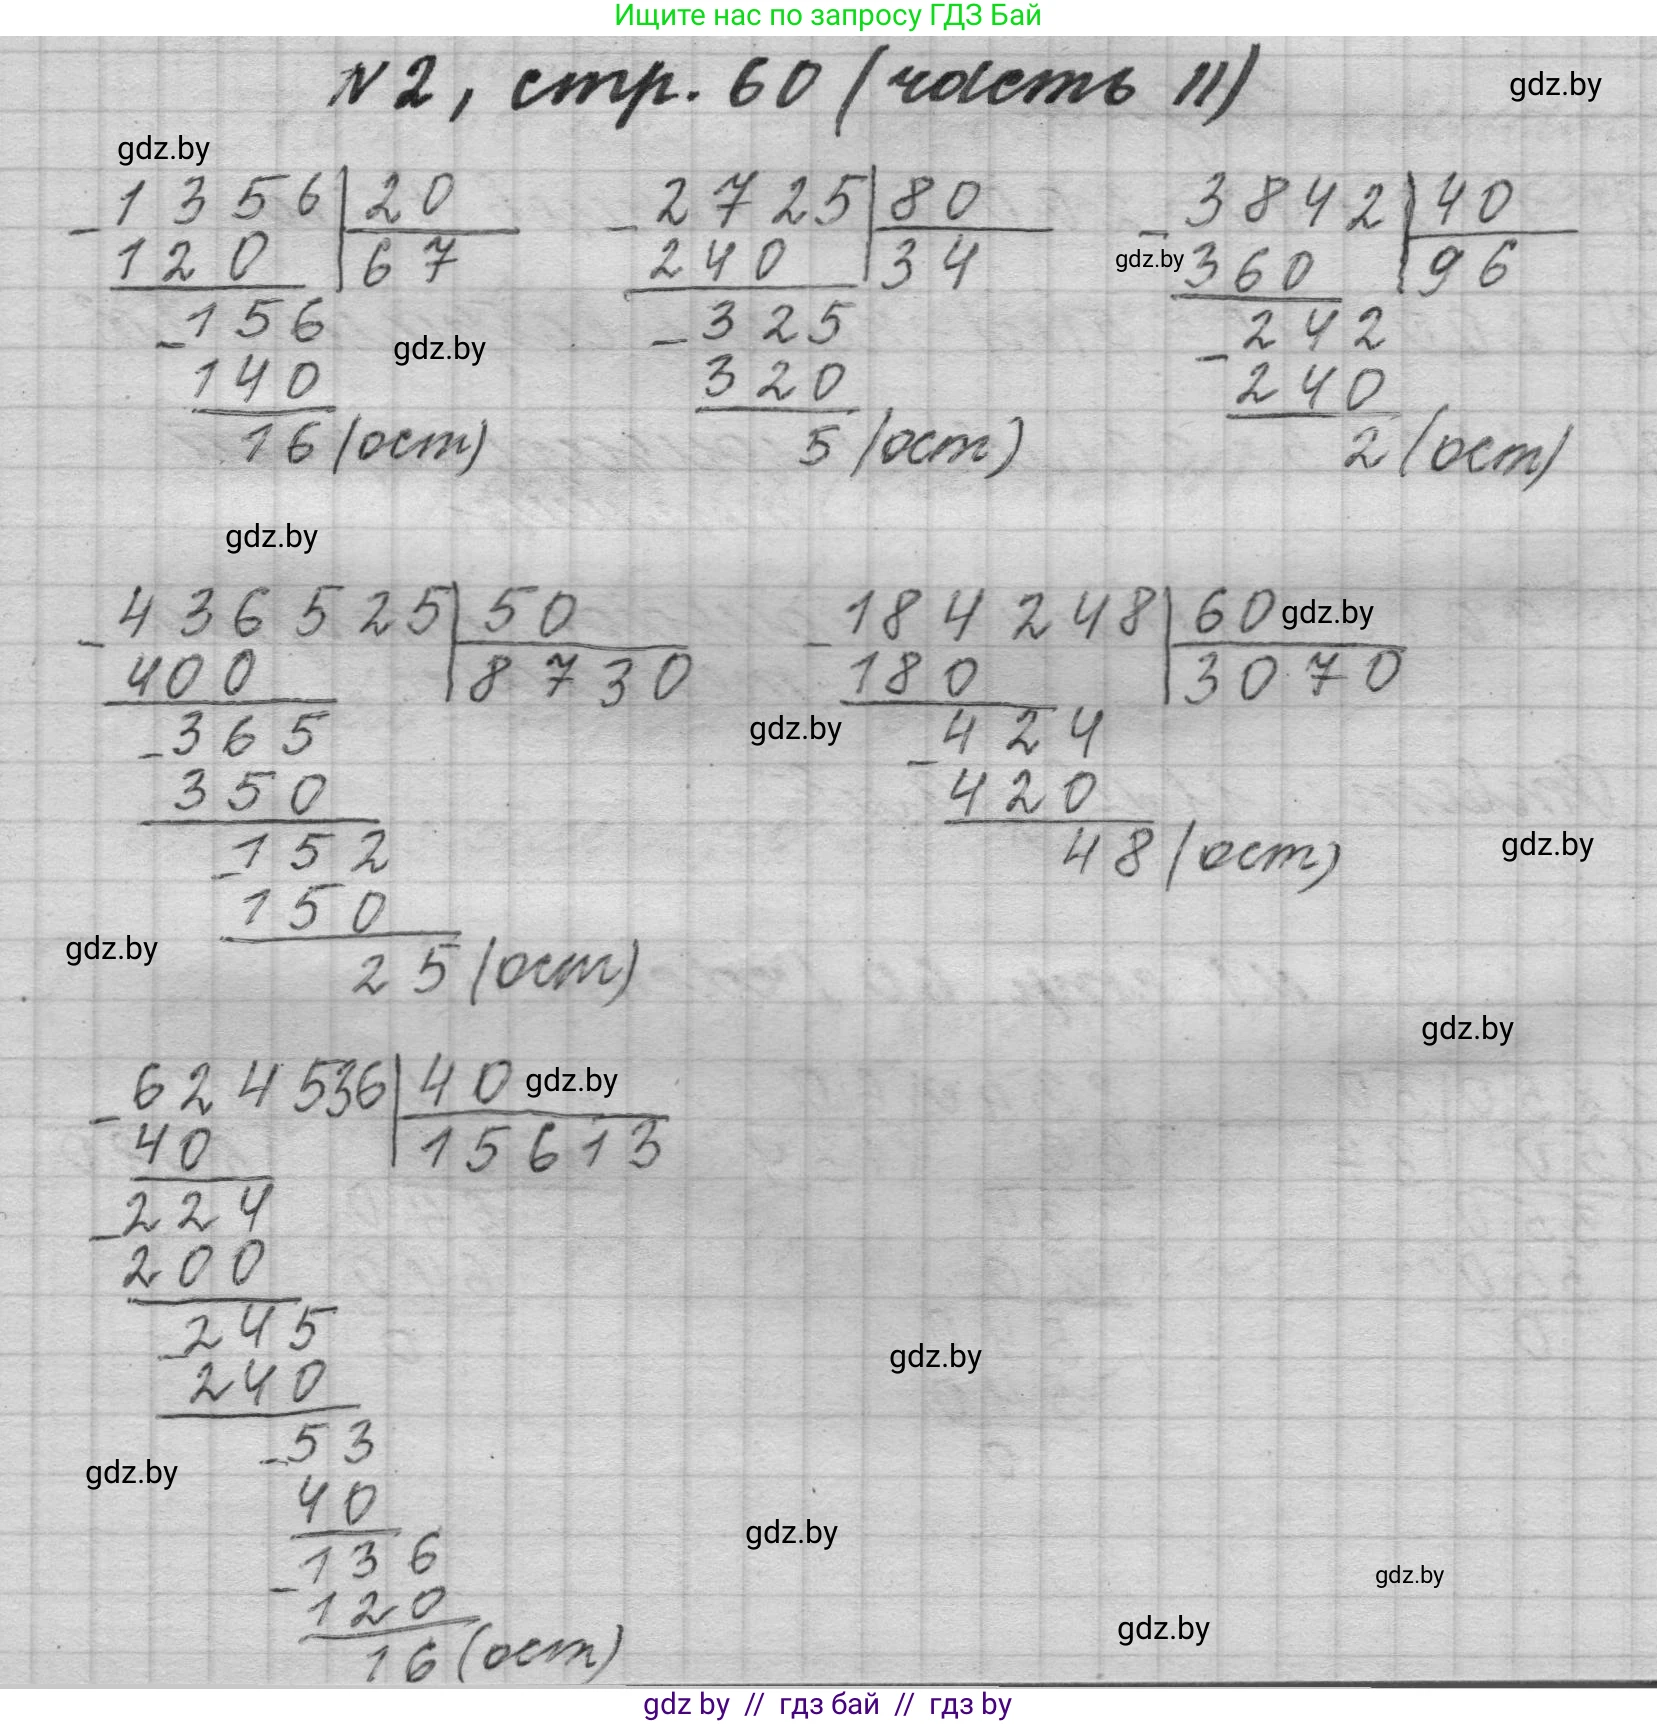 Ищите нас по запросу ГДЗ Бай
N2, стр. 60 (часть II)
gdz.by
gdz.by
1356 | 20
- 120 | 67
- 156
140
16 (ост)
gdz.by
2725 | 80
- 240 | 34
- 325
320
5 (ост)
3842 | 40
- 360 | 96
gdz.by
- 242
240
2 (ост)
gdz.by
436525 | 50
- 400 | 8730
- 365
350
- 152
150
25 (ост)
gdz.by
184248 | 60
gdz.by
- 180 | 3070
gdz.by
- 424
420
48 (ост)
gdz.by
gdz.by
624536 | 40
gdz.by
- 40 | 15613
- 224
200
- 245
240
- 53
40
- 136
120
16 (ост)
gdz.by
gdz.by
gdz.by
gdz.by
gdz.by
gdz by // гдз бай // гдз by